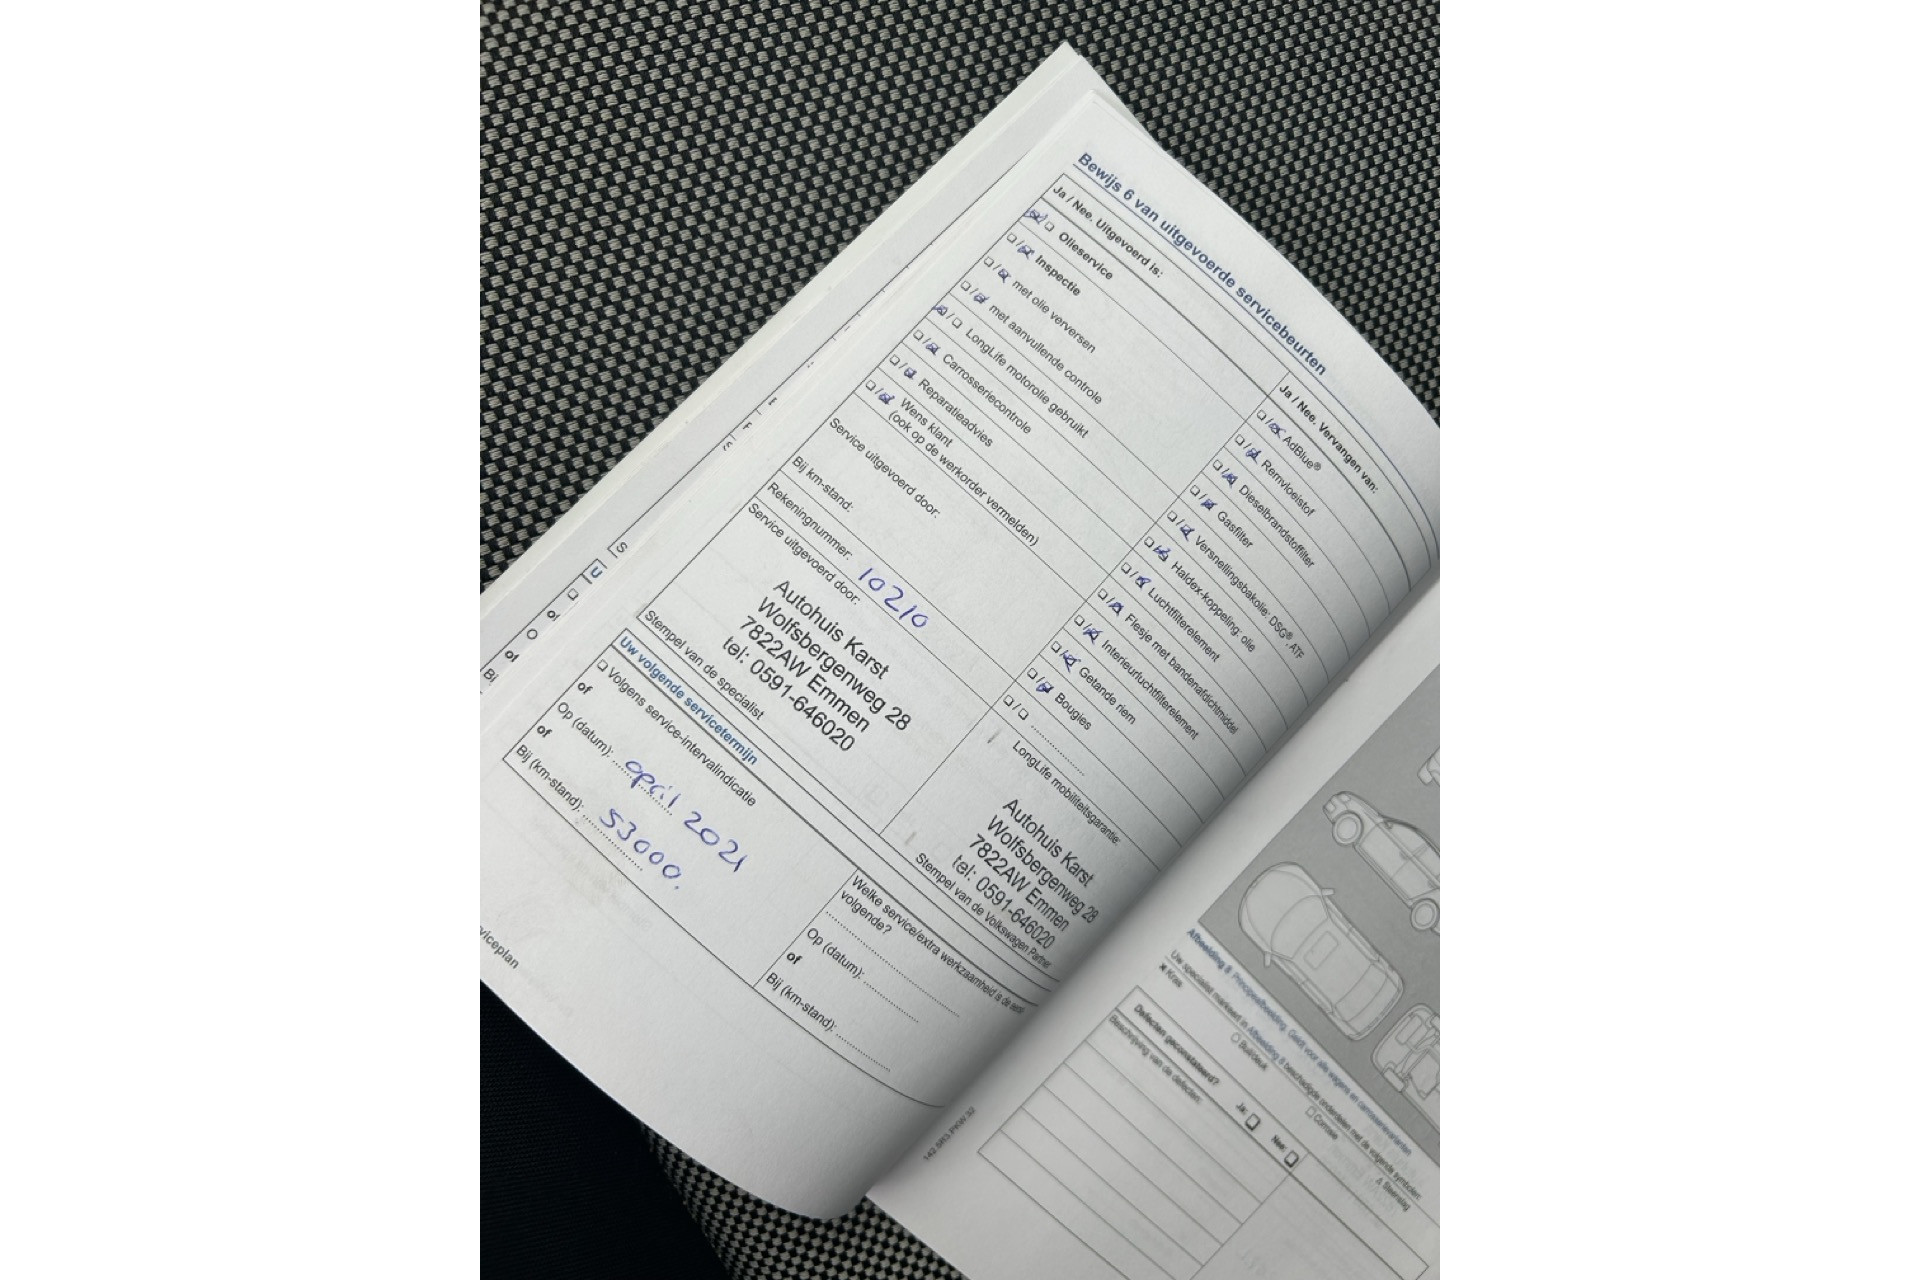 Bewijs 6 van uitgevoerde servicebeurten
Ja / Nee. Uitgevoerd is:
Olieservice
Inspectie
met olie verversen
met aanvullende controle
LongLife motorolie gebruikt
Carrosseriecontrole
Reparatieadvies
Wens klant
(ook op de werkorder vermelden)
Service uitgevoerd door:
Bij km-stand:
Rekeningnummer: 10210
Service uitgevoerd door:
Autohuis Karst
Wolfsbergenweg 28
7822AW Emmen
tel: 0591-646020
Stempel van de specialist
Ja / Nee. Vervangen van:
AdBlue®
Remvloeistof
Dieselbrandstoffilter
Gasfilter
Versnellingsbakolie: DSG®, ATF
Haldex-koppeling: olie
Luchtfilterelement
Flesje met bandenafdichtmiddel
Interieurluchtfilterelement
Getande riem
Bougies
LongLife mobiliteitsgarantie:
Autohuis Karst
Wolfsbergenweg 28
7822AW Emmen
tel: 0591-646020
Stempel van de Volkswagen Partner
Uw volgende servicetermijn
Volgens service-intervalindicatie
of
Op (datum): april 2021
of
Bij (km-stand): 53000.
Welke service/extra werkzaamheid is de eerst
volgende?
Op (datum):
of
Bij (km-stand):
viceplan
S
U
of
of
Bij
Afbeelding 8 Principeafbeelding. Geldt voor alle wagens en carrosserievarianten
Uw specialist markeert in Afbeelding 8 beschadigde onderdelen met de volgende symbolen:
Kras
Buil/deuk
Corrosie
Steenslag
Defecten geconstateerd?
Ja:
Nee:
Beschrijving van de defecten: